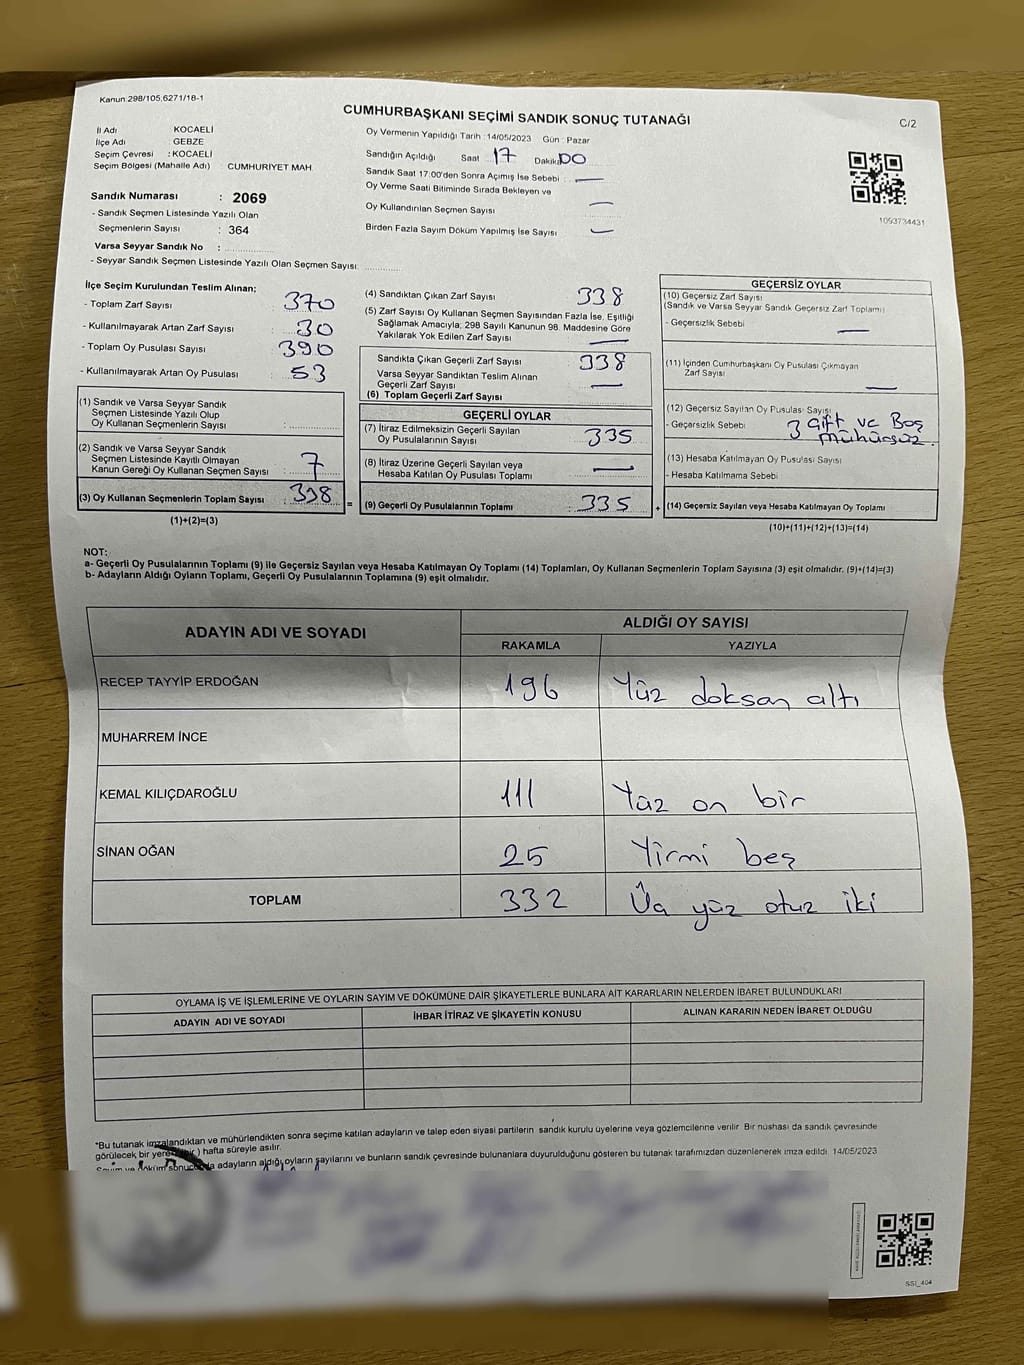 Kanun:298/105,6271/18-1
CUMHURBAŞKANI SEÇİMİ SANDIK SONUÇ TUTANAĞI
C/2
İl Adı KOCAELİ
İlçe Adı GEBZE
Seçim Çevresi : KOCAELİ
Seçim Bölgesi (Mahalle Adı) CUMHURİYET MAH
Oy Vermenin Yapıldığı Tarih : 14/05/2023 Gün : Pazar
Sandığın Açıldığı Saat 17 Dakika 00
Sandık Saat 17:00'den Sonra Açımış İse Sebebi : —
Oy Verme Saati Bitiminde Sırada Bekleyen ve
Oy Kullandırılan Seçmen Sayısı —
Birden Fazla Sayım Döküm Yapılmış İse Sayısı —
1093734431
Sandık Numarası : 2069
- Sandık Seçmen Listesinde Yazılı Olan
Seçmenlerin Sayısı : 364
Varsa Seyyar Sandık No :
- Seyyar Sandık Seçmen Listesinde Yazılı Olan Seçmen Sayısı:
İlçe Seçim Kurulundan Teslim Alınan;
- Toplam Zarf Sayısı : 370
- Kullanılmayarak Artan Zarf Sayısı : 30
- Toplam Oy Pusulası Sayısı : 390
- Kullanılmayarak Artan Oy Pusulası : 53
(1) Sandık ve Varsa Seyyar Sandık
Seçmen Listesinde Yazılı Olup
Oy Kullanan Seçmenlerin Sayısı :
(2) Sandık ve Varsa Seyyar Sandık
Seçmen Listesinde Kayıtlı Olmayan
Kanun Gereği Oy Kullanan Seçmen Sayısı : 7
(3) Oy Kullanan Seçmenlerin Toplam Sayısı : 338 =
(1)+(2)=(3)
(4) Sandıktan Çıkan Zarf Sayısı 338
(5) Zarf Sayısı Oy Kullanan Seçmen Sayısından Fazla İse, Eşitliği
Sağlamak Amacıyla; 298 Sayılı Kanunun 98. Maddesine Göre
Yakılarak Yok Edilen Zarf Sayısı —
Sandıkta Çıkan Geçerli Zarf Sayısı 338
Varsa Seyyar Sandıktan Teslim Alınan
Geçerli Zarf Sayısı —
(6) Toplam Geçerli Zarf Sayısı
GEÇERLİ OYLAR
(7) İtiraz Edilmeksizin Geçerli Sayılan
Oy Pusulalarının Sayısı 335
(8) İtiraz Üzerine Geçerli Sayılan veya
Hesaba Katılan Oy Pusulası Toplamı —
(9) Geçerli Oy Pusulalarının Toplamı 335 +
GEÇERSİZ OYLAR
(10) Geçersiz Zarf Sayısı
(Sandık ve Varsa Seyyar Sandık Geçersiz Zarf Toplamı)
- Geçersizlik Sebebi —
(11) İçinden Cumhurbaşkanı Oy Pusulası Çıkmayan
Zarf Sayısı —
(12) Geçersiz Sayılan Oy Pusulası Sayısı
- Geçersizlik Sebebi 3 Çift ve Boş
Mühürsüz
(13) Hesaba Katılmayan Oy Pusulası Sayısı
- Hesaba Katılmama Sebebi
(14) Geçersiz Sayılan veya Hesaba Katılmayan Oy Toplamı
(10)+(11)+(12)+(13)=(14)
NOT:
a- Geçerli Oy Pusulalarının Toplamı (9) ile Geçersiz Sayılan veya Hesaba Katılmayan Oy Toplamı (14) Toplamları, Oy Kullanan Seçmenlerin Toplam Sayısına (3) eşit olmalıdır. (9)+(14)=(3)
b- Adayların Aldığı Oyların Toplamı, Geçerli Oy Pusulalarının Toplamına (9) eşit olmalıdır.
ADAYIN ADI VE SOYADI
ALDIĞI OY SAYISI
RAKAMLA YAZIYLA
RECEP TAYYİP ERDOĞAN 196 Yüz doksan altı
MUHARREM İNCE
KEMAL KILIÇDAROĞLU 111 Yüz on bir
SİNAN OĞAN 25 Yirmi beş
TOPLAM 332 Üç yüz otuz iki
OYLAMA İŞ VE İŞLEMLERİNE VE OYLARIN SAYIM VE DÖKÜMÜNE DAİR ŞİKAYETLERLE BUNLARA AİT KARARLARIN NELERDEN İBARET BULUNDUKLARI
ADAYIN ADI VE SOYADI İHBAR İTİRAZ VE ŞİKAYETİN KONUSU ALINAN KARARIN NEDEN İBARET OLDUĞU
*Bu tutanak imzalandıktan ve mühürlendikten sonra seçime katılan adayların ve talep eden siyasi partilerin sandık kurulu üyelerine veya gözlemcilerine verilir. Bir nüshası da sandık çevresinde
görülecek bir yere ) hafta süreyle asılır.
Sayım ve döküm adayların aldığı oyların sayılarını ve bunların sandık çevresinde bulunanlara duyurulduğunu gösteren bu tutanak tarafımızdan düzenlenerek imza edildi. 14/05/2023
SSİ_404